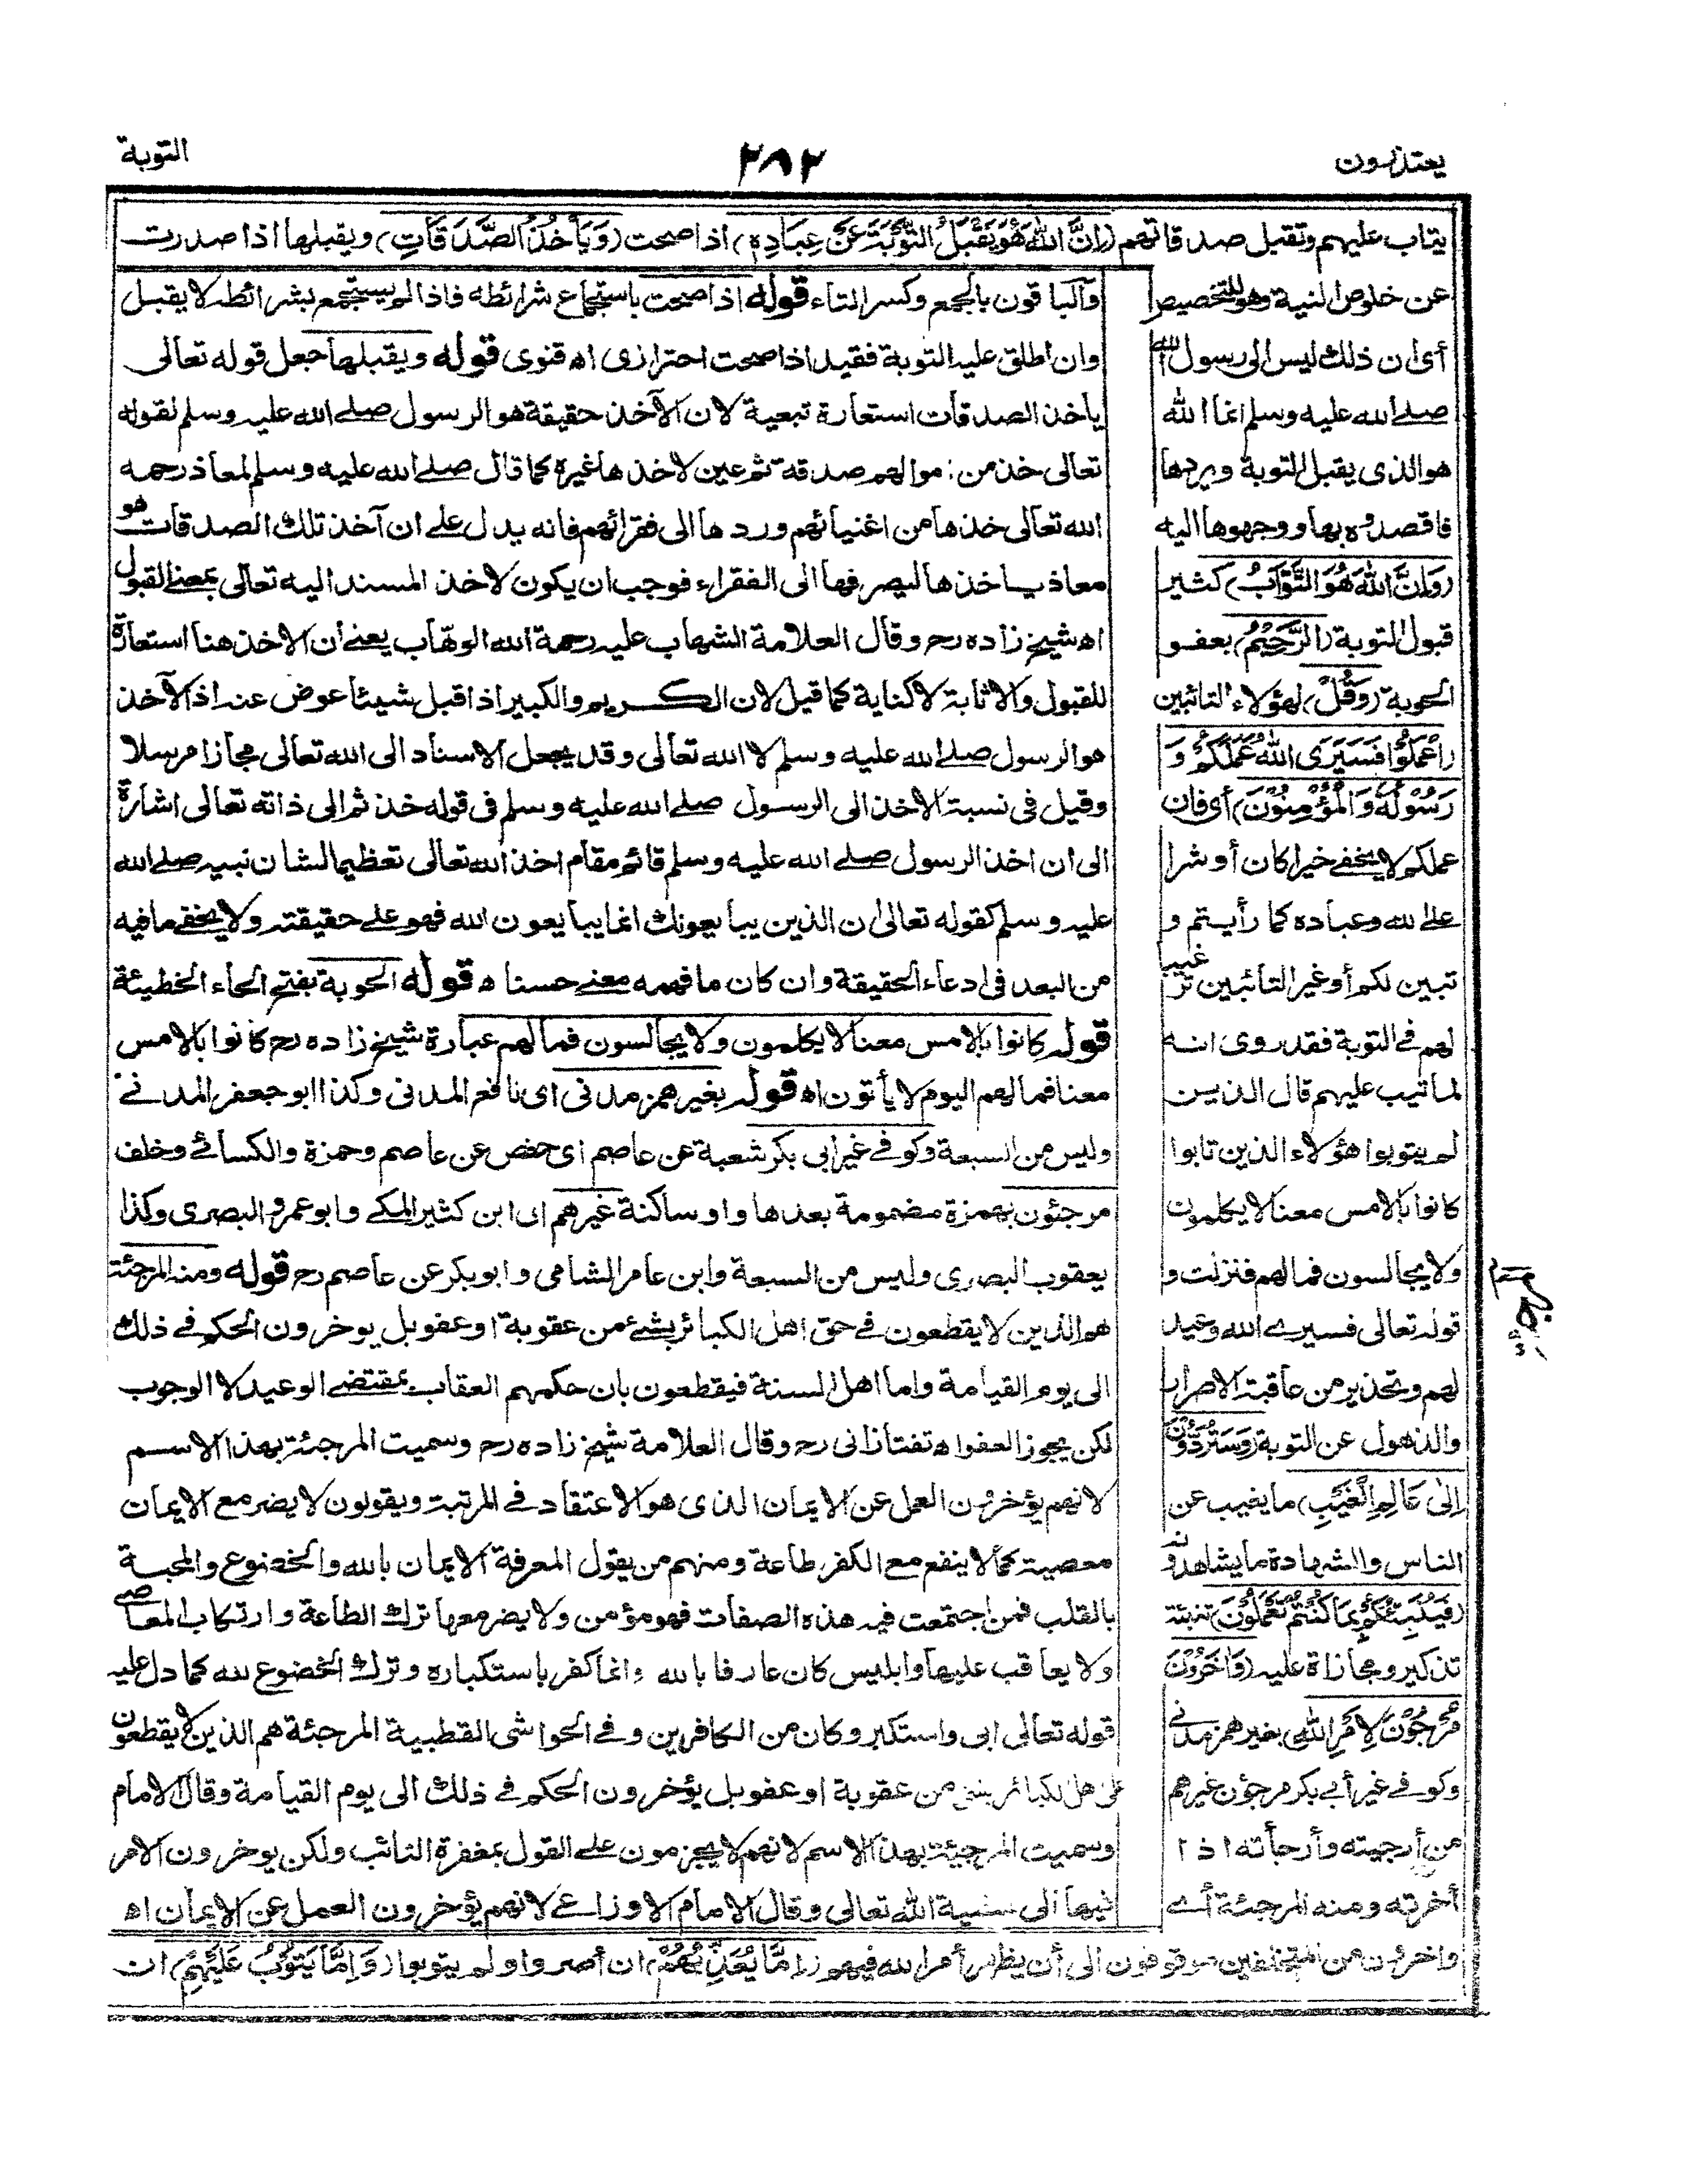 يعتذرون
٢٨٢
التوبة
يتاب عليهم وتقبل صدقاتهم (إِنَّ اللّٰهَ هُوَ يَقْبَلُ التَّوْبَةَ عَنْ عِبَادِهٖ) اذا صحت (وَيَأْخُذُ الصَّدَقَاتِ) ويقبلها اذا صدرت
عن خلوص النية وهو للتخصيص
أى ان ذلك ليس الى رسول الله
صلے الله عليه وسلم انما الله
هو الذى يقبل التوبة ويردها
فاقصدوه بها ووجهوها اليه
(وَاِنَّ اللّٰهَ هُوَ التَّوَّابُ) كثير
قبول التوبة (الرَّحِيْمُ) بعفو
الحوبة (وَقُلْ) لهؤلاء التائبين
(اعْمَلُوْا فَسَيَرَى اللّٰهُ عَمَلَكُمْ وَ
رَسُوْلُهٗ وَالْمُؤْمِنُوْنَ) أى فان
عملكم لا يخفے خيرا كان أو شرا
علے الله وعباده كما رأيتم و
تبين لكم أو غير التائبين ترغيبا
لهم فے التوبة فقد روى انه
لما تيب عليهم قال الذين
لم يتوبوا هؤلاء الذين تابوا
كانوا بالامس معنا لا يكلمون
ولا يجالسون فما لهم فنزلت و
قوله تعالى فسيرے الله وعيد
لهم وتحذير من عاقبة الاصرار
والذهول عن التوبة (وَسَتُرَدُّوْنَ
اِلٰى عَالِمِ الْغَيْبِ) ما يغيب عن
الناس والشهادة ما يشاهدونه
(فَيُنَبِّئُكُمْ بِمَا كُنْتُمْ تَعْمَلُوْنَ) تنبئة
تذكير ومجازاة عليه (وَاٰخَرُوْنَ
مُرْجَوْنَ لِاَمْرِ اللّٰهِ) بغير همز مدنے
وكوفے غير أبى بكر مرجؤن غيرهم
من أرجيته وأرجأته اذا
أخرته ومنه المرجئة أے
والباقون بالجمع وكسر التاء قوله اذا صحت باستجماع شرائطه فاذا لم يستجمع بشرائطه لا يقبل
وان اطلق عليه التوبة فقيد اذا صحت احترازى اه قنوى قوله ويقبلها جعل قوله تعالى
يأخذ الصدقات استعارة تبعية لان الآخذ حقيقة هو الرسول صلے الله عليه وسلم لقوله
تعالى خذ من اموالهم صدقة ثم عين لاخذها غيره كما قال صلے الله عليه وسلم لمعاذ رحمه
الله تعالى خذها من اغنيائهم وردها الى فقرائهم فانه يدل علے ان آخذ تلك الصدقات هو
معاذ ياخذها ليصرفها الى الفقراء فوجب ان يكون لاخذ المسند اليه تعالى بمعنے القبول
اه شيخ زاده رح وقال العلامة الشهاب عليه رحمة الله الوهّاب يعنے أن الاخذ هنا استعارة
للقبول والاثابة لا كناية كما قيل لان الكريم والكبير اذا قبل شيئا عوض عنه اذ الآخذ
هو الرسول صلے الله عليه وسلم لا الله تعالى وقد يجعل الاسناد الى الله تعالى مجازا مرسلا
وقيل فى نسبة الاخذ الى الرسول صلے الله عليه وسلم فى قوله خذ ثم الى ذاته تعالى اشارة
الى ان اخذ الرسول صلے الله عليه وسلم قائم مقام اخذ الله تعالى تعظيما لشان نبيه صلے الله
عليه وسلم كقوله تعالى ان الذين يبايعونك انما يبايعون الله فهو علے حقيقته ولا يخفے ما فيه
من البعد فى ادعاء الحقيقة وان كان ما فهمه معنے حسنا اه قوله الحوبة بفتح الحاء الخطيئة
قوله كانوا بالامس معنا لا يكلمون ولا يجالسون فما لهم عبارة شيخ زاده رح كانوا بالامس
معنا فما لهم اليوم لا يأتون اه قوله بغير همز مدنى اى نافع المدنى وكذا ابو جعفر المدنے
وليس من السبعة وكوفے غير ابى بكر شعبة عن عاصم اى حفص عن عاصم وحمزة والكسائے وخلف
مرجئون بهمزة مضمومة بعدها واو ساكنة غيرهم اى ابن كثير المكے وابو عمرو البصرى وكذا
يعقوب البصرى وليس من السبعة وابن عامر الشامى وابو بكر عن عاصم رح قوله ومنه المرجئة
هم الذين لا يقطعون فے حق اهل الكبائر بشئ من عقوبة او عفو بل يوخرون الحكم فے ذلك
الى يوم القيامة واما اهل السنة فيقطعون بان حكمهم العقاب بمقتضے الوعيد لا الوجوب
لكن يجوز العفو اه تفتازانى رح وقال العلامة شيخ زاده رح وسميت المرجئة بهذا الاسم
لانهم يؤخرون العمل عن الايمان الذى هو الاعتقاد فے المرتبة ويقولون لا يضر مع الايمان
معصية كما لا ينفع مع الكفر طاعة ومنهم من يقول المعرفة الايمان بالله والخضوع والمحبة
بالقلب فمن اجتمعت فيه هذه الصفات فهو مؤمن ولا يضر معها ترك الطاعة وارتكاب المعاصے
ولا يعاقب عليها وابليس كان عارفا بالله وانما كفر باستكباره وترك الخضوع لله كما دل عليه
قوله تعالى ابى واستكبر وكان من الكافرين وفے الحواشى القطبية المرجئة هم الذين لا يقطعون
على اهل الكبائر بشئ من عقوبة او عفو بل يؤخرون الحكم فے ذلك الى يوم القيامة وقال الامام
وسميت المرجئة بهذا الاسم لانهم لا يجزمون علے القول بمغفرة التائب ولكن يوخرون الامر
فيها الى مشية الله تعالى وقال الامام الاوزاعے لانهم يؤخرون العمل عن الايمان اه
واخرون من المتخلفين موقوفون الى أن يظهر أمر الله فيهم (اِمَّا يُعَذِّبُهُمْ) ان أصروا ولم يتوبوا (وَاِمَّا يَتُوْبُ عَلَيْهِمْ) ان